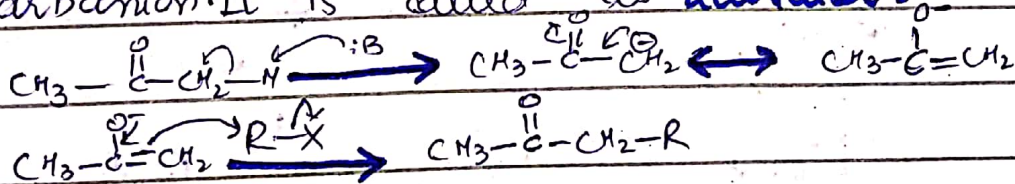 carbanion. It is called
O O O⁻
CH₃ — C — CH₂ — H :B ⟶ CH₃ — C — CH₂ ⊖ ⟷ CH₃ — C = CH₂
O⁻ O
CH₃ — C = CH₂ R — X ⟶ CH₃ — C — CH₂ — R